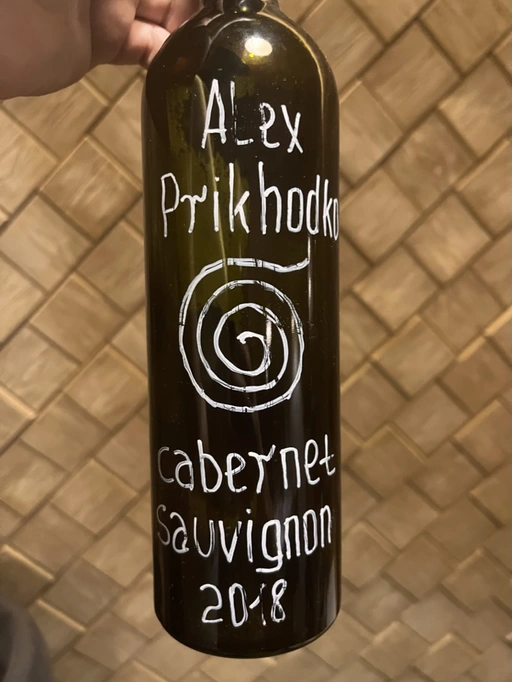 ALex
Prikhodko
cabernet
sauvignon
2018